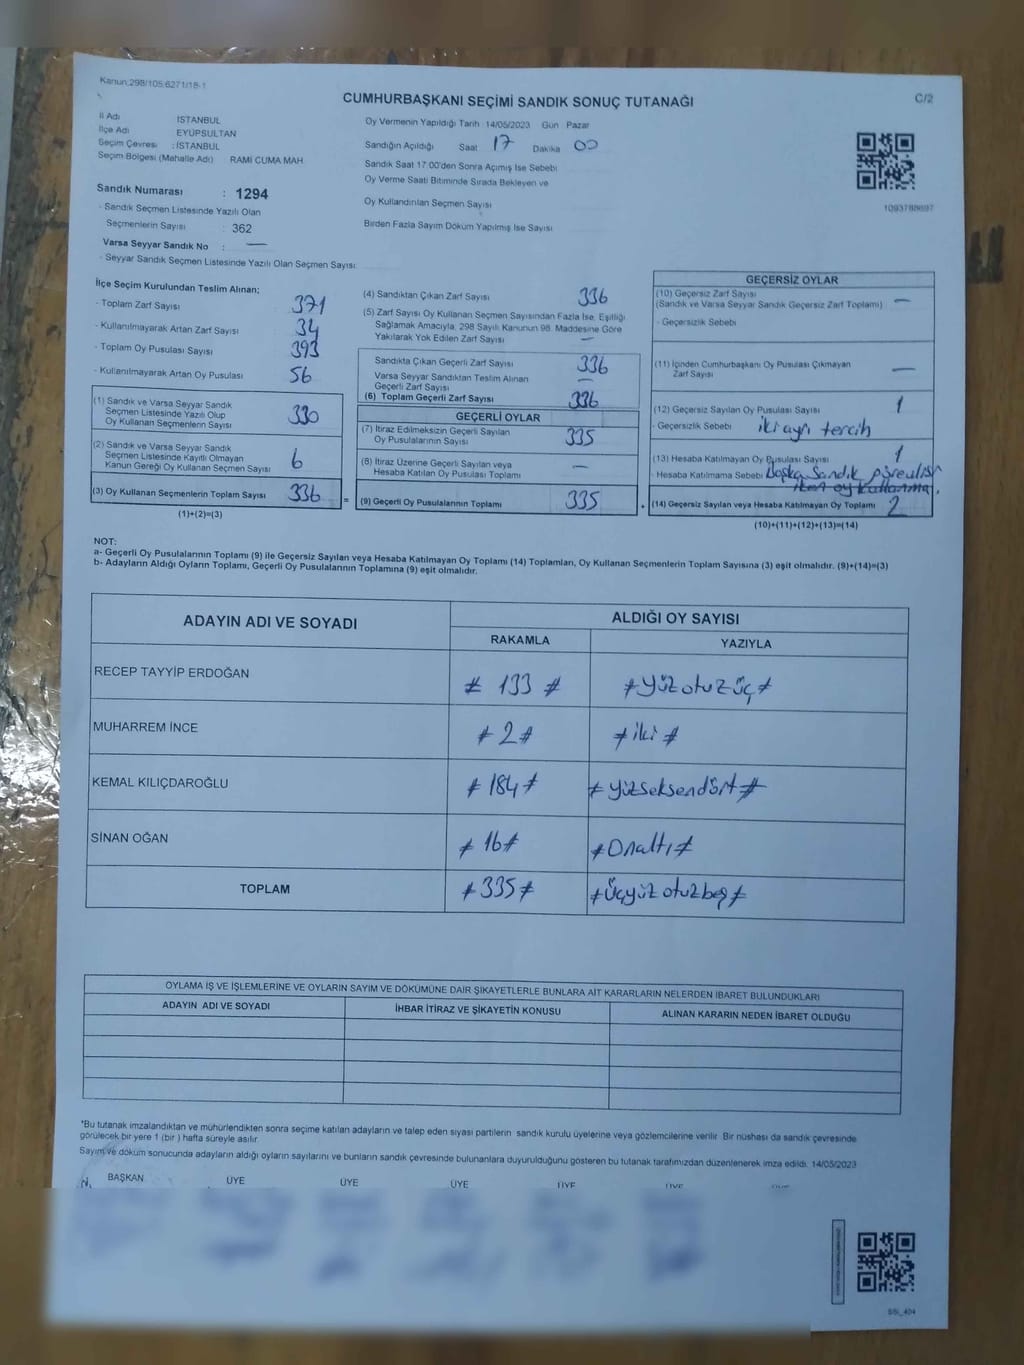 Kanun:298/105;6271/18-1
C/2
CUMHURBAŞKANI SEÇİMİ SANDIK SONUÇ TUTANAĞI
İl Adı İSTANBUL
İlçe Adı EYÜPSULTAN
Seçim Çevresi : İSTANBUL
Seçim Bölgesi (Mahalle Adı) RAMİ CUMA MAH.
Sandık Numarası : 1294
- Sandık Seçmen Listesinde Yazılı Olan
Seçmenlerin Sayısı : 362
Varsa Seyyar Sandık No : —
- Seyyar Sandık Seçmen Listesinde Yazılı Olan Seçmen Sayısı:
Oy Vermenin Yapıldığı Tarih 14/05/2023 Gün Pazar
Sandığın Açıldığı Saat 17 Dakika 00
Sandık Saat 17:00'den Sonra Açımış İse Sebebi
Oy Verme Saati Bitiminde Sırada Bekleyen ve
Oy Kullandırılan Seçmen Sayısı
Birden Fazla Sayım Döküm Yapılmış İse Sayısı
1093788697
İlçe Seçim Kurulundan Teslim Alınan;
- Toplam Zarf Sayısı 371
- Kullanılmayarak Artan Zarf Sayısı 34
- Toplam Oy Pusulası Sayısı 393
- Kullanılmayarak Artan Oy Pusulası 56
(1) Sandık ve Varsa Seyyar Sandık
Seçmen Listesinde Yazılı Olup
Oy Kullanan Seçmenlerin Sayısı 330
(2) Sandık ve Varsa Seyyar Sandık
Seçmen Listesinde Kayıtlı Olmayan
Kanun Gereği Oy Kullanan Seçmen Sayısı 6
(3) Oy Kullanan Seçmenlerin Toplam Sayısı 336
(1)+(2)=(3)
(4) Sandıktan Çıkan Zarf Sayısı 336
(5) Zarf Sayısı Oy Kullanan Seçmen Sayısından Fazla İse, Eşitliği
Sağlamak Amacıyla, 298 Sayılı Kanunun 98. Maddesine Göre
Yakılarak Yok Edilen Zarf Sayısı —
Sandıkta Çıkan Geçerli Zarf Sayısı 336
Varsa Seyyar Sandıktan Teslim Alınan
Geçerli Zarf Sayısı —
(6) Toplam Geçerli Zarf Sayısı 336
GEÇERLİ OYLAR
(7) İtiraz Edilmeksizin Geçerli Sayılan
Oy Pusulalarının Sayısı 335
(8) İtiraz Üzerine Geçerli Sayılan veya
Hesaba Katılan Oy Pusulası Toplamı —
= (9) Geçerli Oy Pusulalarının Toplamı 335 +
GEÇERSİZ OYLAR
(10) Geçersiz Zarf Sayısı
(Sandık ve Varsa Seyyar Sandık Geçersiz Zarf Toplamı) —
- Geçersizlik Sebebi
(11) İçinden Cumhurbaşkanı Oy Pusulası Çıkmayan
Zarf Sayısı —
(12) Geçersiz Sayılan Oy Pusulası Sayısı 1
- Geçersizlik Sebebi iki ayrı tercih
(13) Hesaba Katılmayan Oy Pusulası Sayısı 1
- Hesaba Katılmama Sebebi Başka Sandık görevlisi
iken oy kullanma.
(14) Geçersiz Sayılan veya Hesaba Katılmayan Oy Toplamı 2
(10)+(11)+(12)+(13)=(14)
NOT:
a- Geçerli Oy Pusulalarının Toplamı (9) ile Geçersiz Sayılan veya Hesaba Katılmayan Oy Toplamı (14) Toplamları, Oy Kullanan Seçmenlerin Toplam Sayısına (3) eşit olmalıdır. (9)+(14)=(3)
b- Adayların Aldığı Oyların Toplamı, Geçerli Oy Pusulalarının Toplamına (9) eşit olmalıdır.
ADAYIN ADI VE SOYADI ALDIĞI OY SAYISI
RAKAMLA YAZIYLA
RECEP TAYYİP ERDOĞAN # 133 # #yüzotuzüç#
MUHARREM İNCE #2# #iki#
KEMAL KILIÇDAROĞLU #184# #yüzseksendört#
SİNAN OĞAN #16# #Onaltı#
TOPLAM #335# #Üçyüzotuzbeş#
OYLAMA İŞ VE İŞLEMLERİNE VE OYLARIN SAYIM VE DÖKÜMÜNE DAİR ŞİKAYETLERLE BUNLARA AİT KARARLARIN NELERDEN İBARET BULUNDUKLARI
ADAYIN ADI VE SOYADI İHBAR İTİRAZ VE ŞİKAYETİN KONUSU ALINAN KARARIN NEDEN İBARET OLDUĞU
*Bu tutanak imzalandıktan ve mühürlendikten sonra seçime katılan adayların ve talep eden siyasi partilerin sandık kurulu üyelerine veya gözlemcilerine verilir. Bir nüshası da sandık çevresinde
görülecek bir yere 1 (bir ) hafta süreyle asılır.
Sayım ve döküm sonucunda adayların aldığı oyların sayılarını ve bunların sandık çevresinde bulunanlara duyurulduğunu gösteren bu tutanak tarafımızdan düzenlenerek imza edildi. 14/05/2023
BAŞKAN ÜYE ÜYE ÜYE ÜYE ÜYE ÜYE